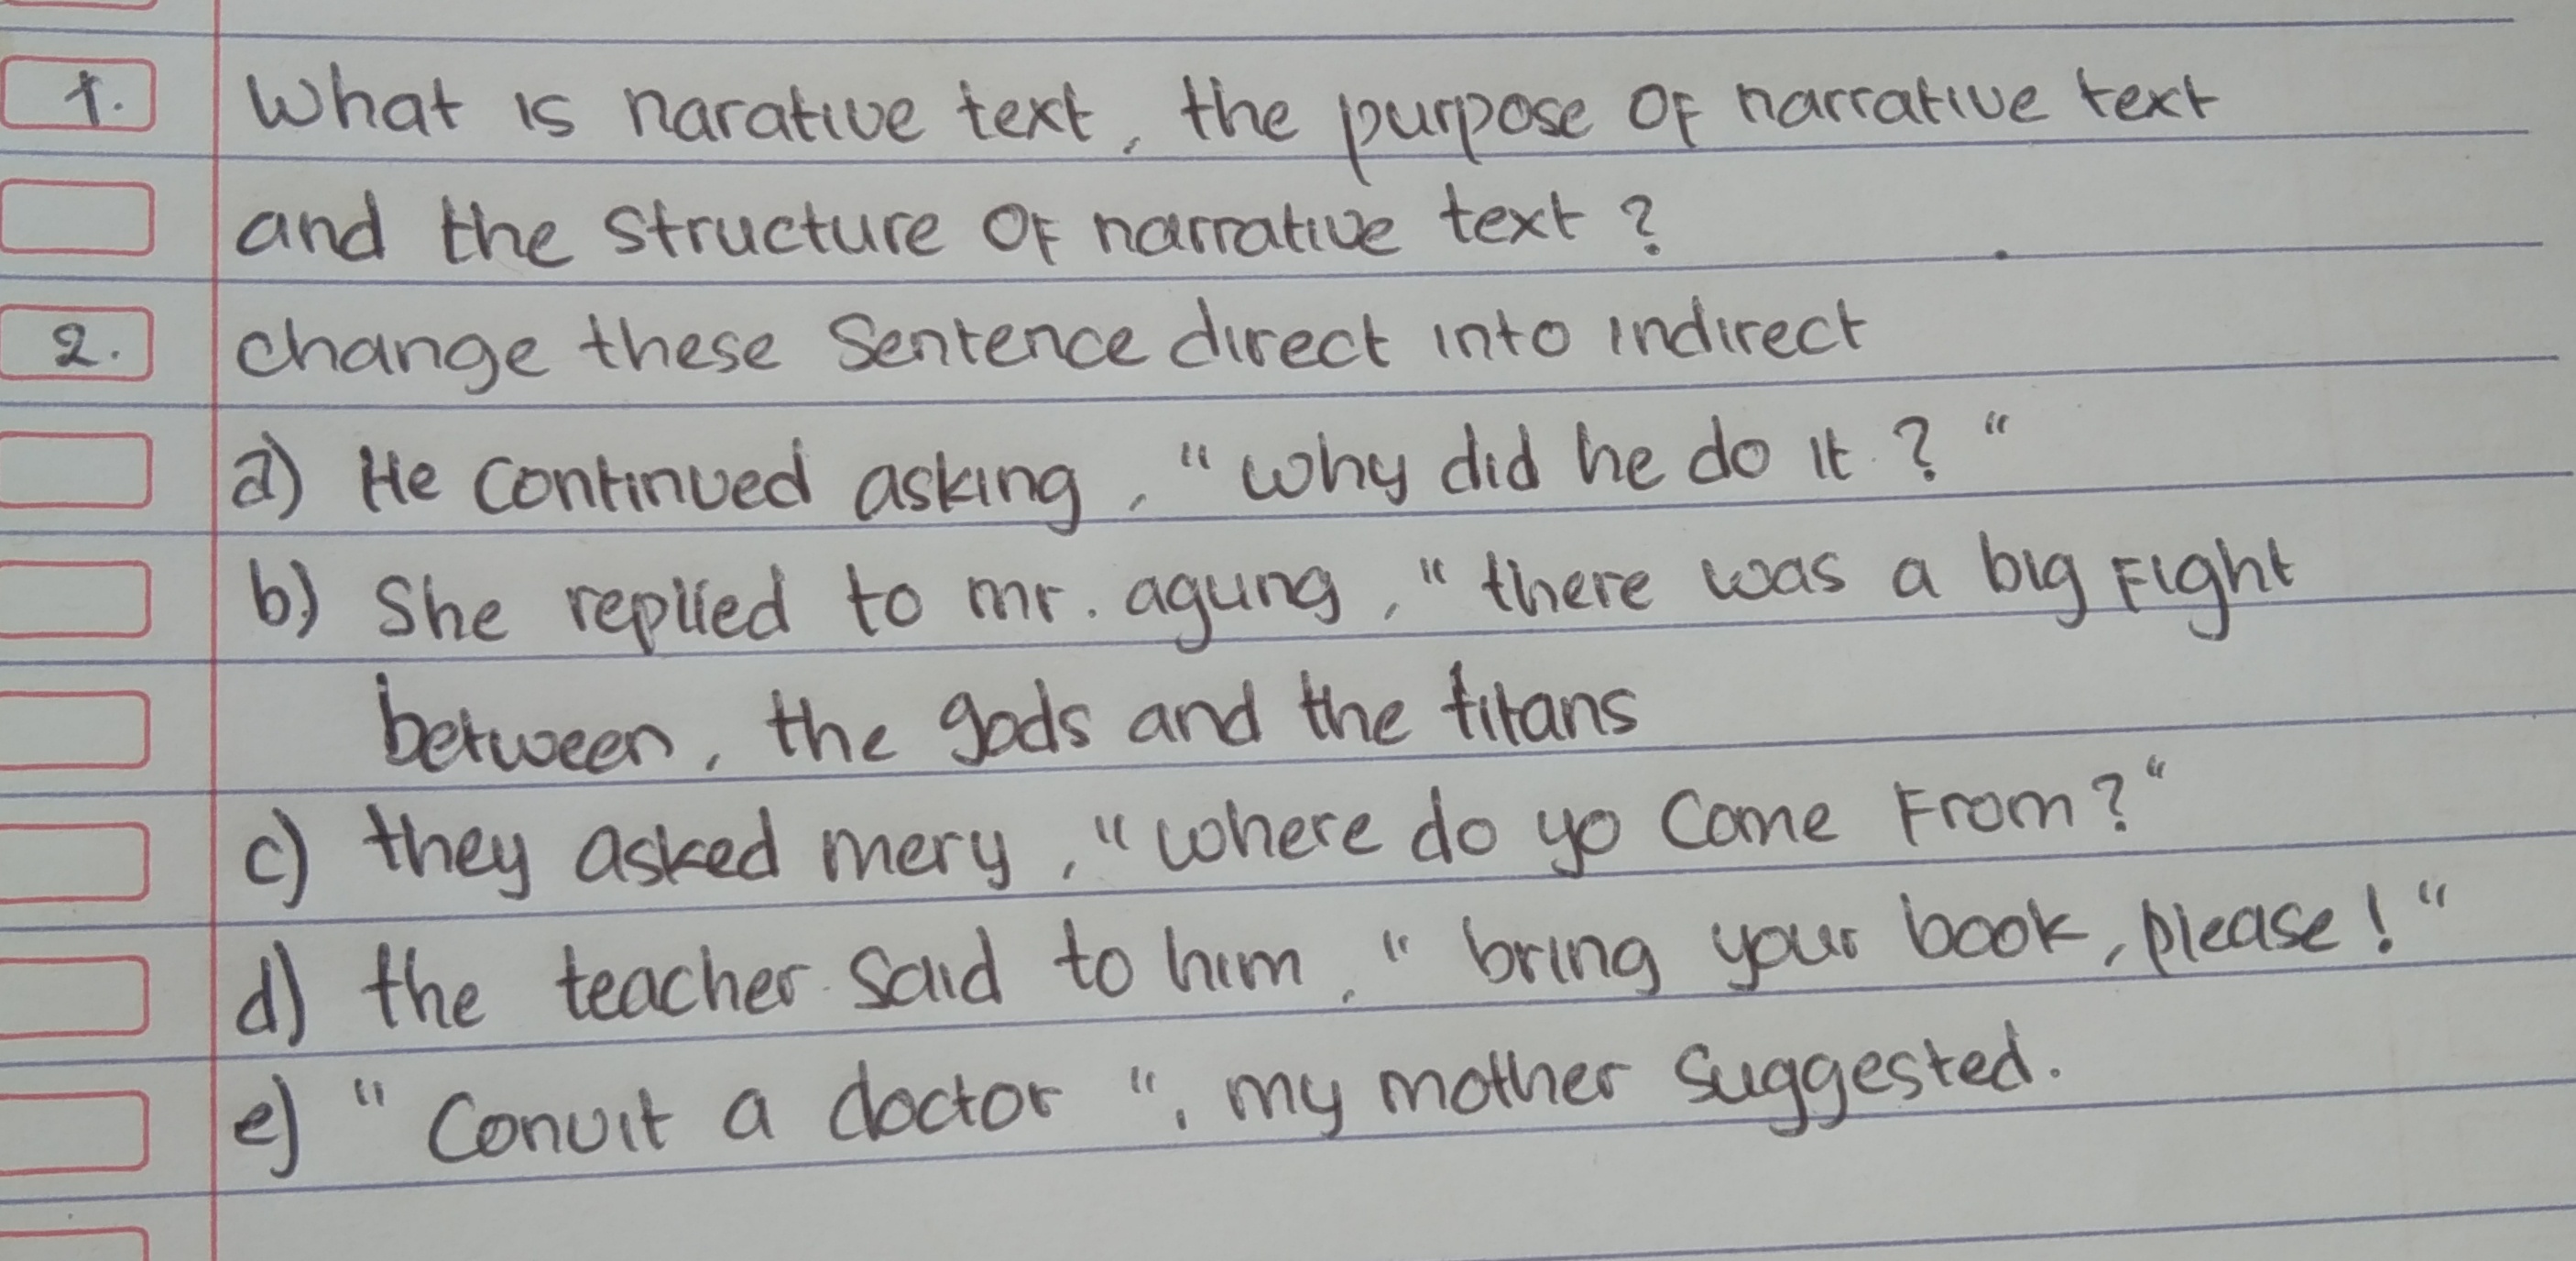 1. What is narative text, the purpose of narrative text
and the structure of narrative text ?
2. change these Sentence direct into indirect
a) He continued asking, "why did he do it ? "
b) She replied to mr. agung, "there was a big Fight
between, the gods and the titans
c) they asked mery, "where do yo come From?"
d) the teacher said to him, "bring your book, please! "
e) "Convit a doctor ", my mother suggested.